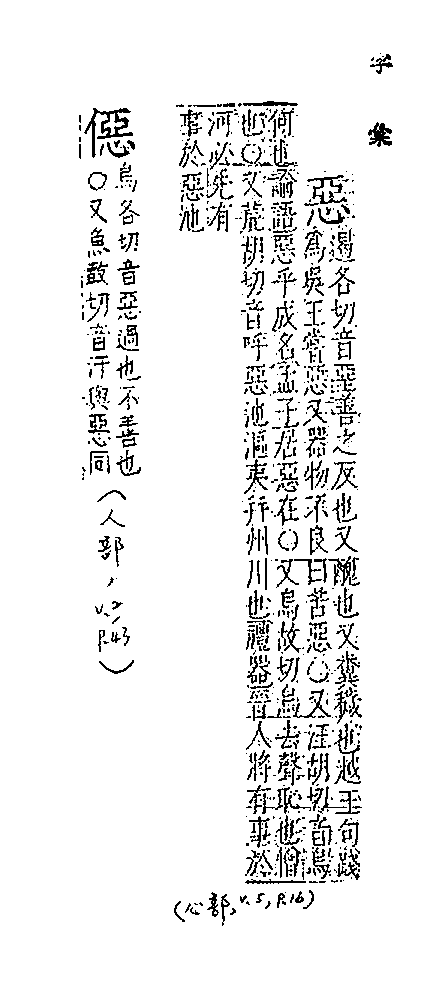 字彙
惡
遏各切音堊善之反也又醜也又糞穢也越王句踐
爲吳王嘗惡又器物不良曰苦惡○又汪胡切音烏
何也論語惡乎成名孟子居惡在○又烏故切烏去聲恥也憎
也○又荒胡切音呼惡池漚夷幷州川也禮器晉人將有事於
河必先有
事於惡池
(心部, v.5, p.16)
僫
烏各切音惡過也不善也
○又魚敢切音汙與惡同
(人部, v.2, p.43)